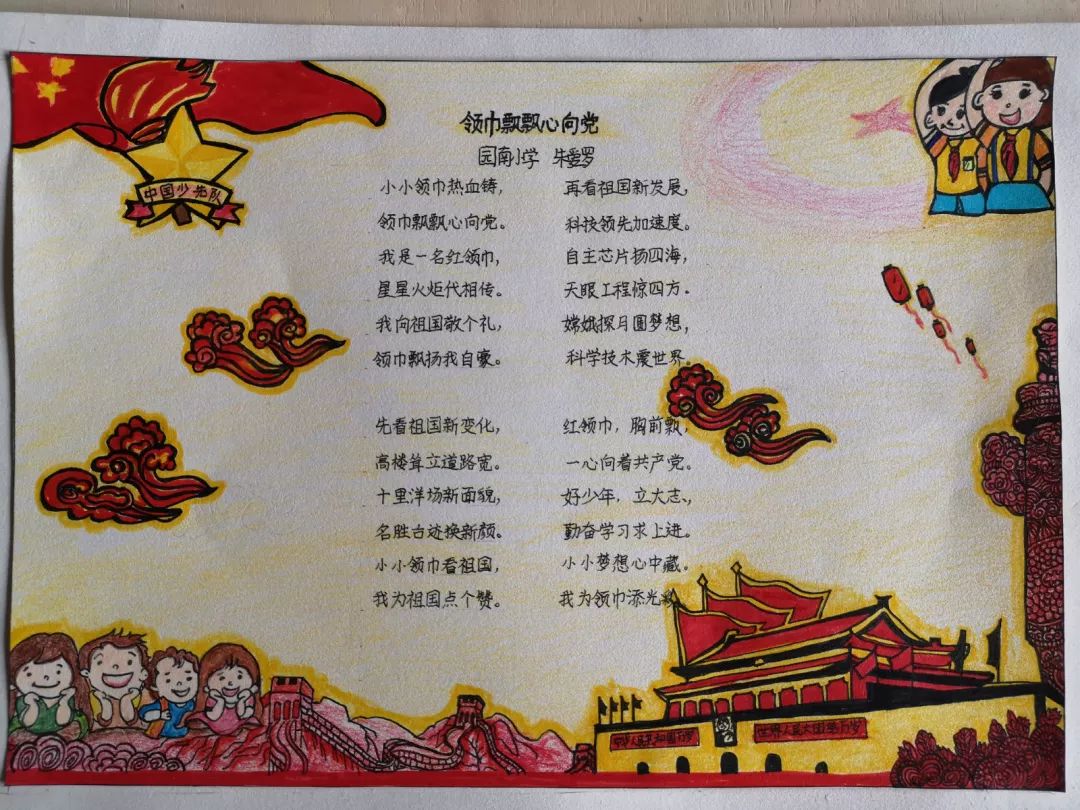 中国少先队
领巾飘飘心向党
园南小学 朱爱罗
小小领巾热血铸，
领巾飘飘心向党。
我是一名红领巾，
星星火炬代相传。
我向祖国敬个礼，
领巾飘扬我自豪。
先看祖国新变化，
高楼耸立道路宽。
十里洋场新面貌，
名胜古迹换新颜。
小小领巾看祖国，
我为祖国点个赞。
再看祖国新发展，
科技领先加速度。
自主芯片扬四海，
天眼工程惊四方。
嫦娥探月圆梦想，
科学技术震世界。
红领巾，胸前飘，
一心向着共产党。
好少年，立大志，
勤奋学习求上进。
小小梦想心中藏。
我为领巾添光
中华人民共和国万岁
世界人民大团结万岁